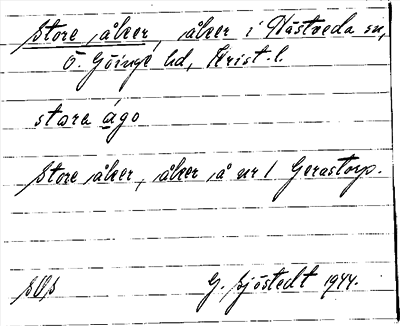 Store åker, åker i Hästveda sn,
Ö. Göinge hd, Krist. l.
stora ågo
Store åker, åker å nr 1 Gerastorp.
SOS
G. Sjöstedt 1944.